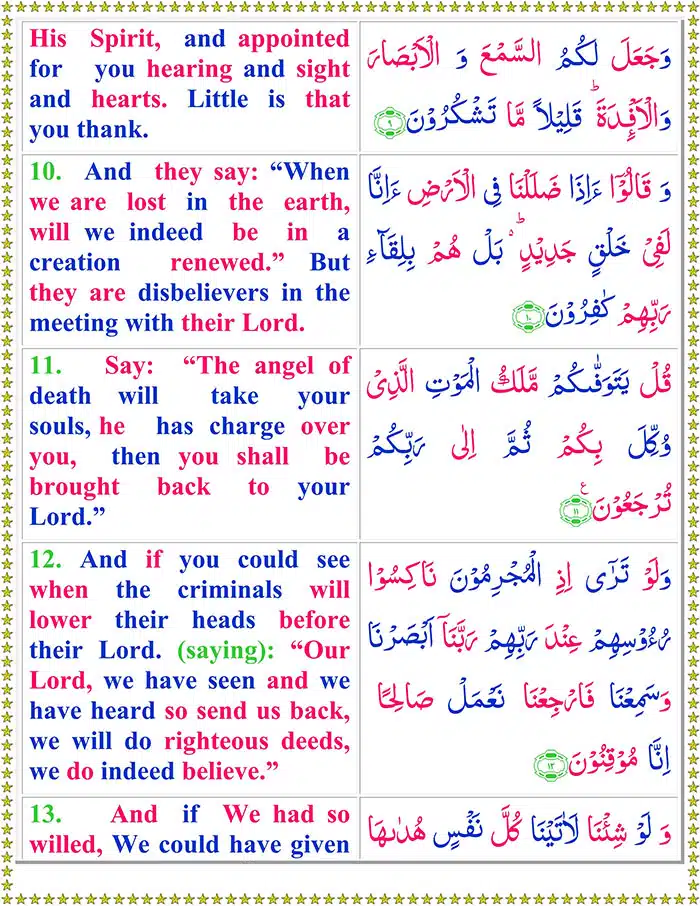 His Spirit, and appointed
for you hearing and sight
and hearts. Little is that
you thank.
وَجَعَلَ لَكُمُ السَّمْعَ وَ الْاَبْصَارَ
وَالْاَفْـِٕدَةَ ؕ قَلِيْلاً مَّا تَشْكُرُوْنَ ۹
10. And they say: “When
we are lost in the earth,
will we indeed be in a
creation renewed.” But
they are disbelievers in the
meeting with their Lord.
وَ قَالُوْۤا ءَاِذَا ضَلَلْنَا فِى الْاَرْضِ ءَاِنَّا
لَفِىْ خَلْقٍ جَدِيْدٍ ؕ۬ بَلْ هُمْ بِلِقَآءِ
رَبِّهِمْ كٰفِرُوْنَ ۱۰
11. Say: “The angel of
death will take your
souls, he has charge over
you, then you shall be
brought back to your
Lord.”
قُلْ يَتَوَفّٰٮكُمْ مَّلَكُ الْمَوْتِ الَّذِىْ
وُكِّلَ بِكُمْ ثُمَّ اِلٰى رَبِّكُمْ
تُرْجَعُوْنَ ۱۱ ع
12. And if you could see
when the criminals will
lower their heads before
their Lord. (saying): “Our
Lord, we have seen and we
have heard so send us back,
we will do righteous deeds,
we do indeed believe.”
وَلَوْ تَرٰٓى اِذِ الْمُجْرِمُوْنَ نَاكِسُوْا
رُءُوْسِهِمْ عِنْدَ رَبِّهِمْ رَبَّنَاۤ اَبْصَرْنَا
وَسَمِعْنَا فَارْجِعْنَا نَعْمَلْ صَالِحًا
اِنَّا مُوْقِنُوْنَ ۱۲
13. And if We had so
willed, We could have given
وَ لَوْ شِئْنَا لَاٰتَيْنَا كُلَّ نَفْسٍ هُدٰٮهَا